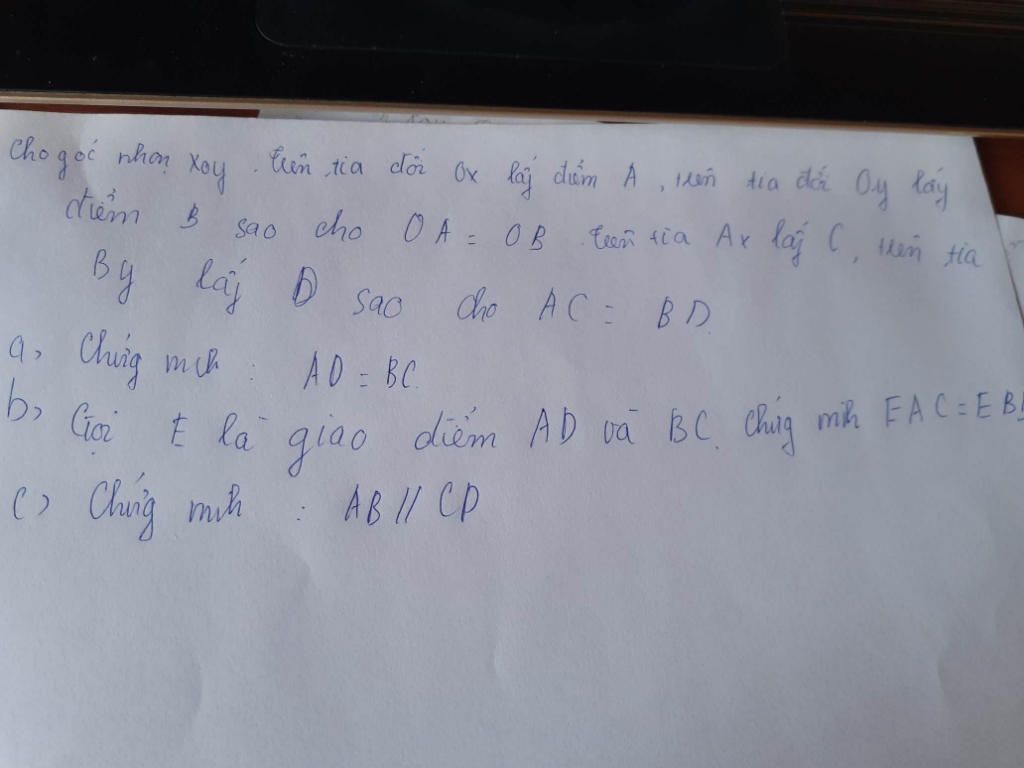 Cho góc nhọn xoy. Trên tia đối Ox lấy điểm A, trên tia đối Oy lấy
điểm B sao cho OA = OB. Trên tia Ax lấy C, trên tia
By lấy D sao cho AC = BD.
a, Chứng mih : AD = BC.
b, Gọi E là giao điểm AD và BC. Chứng mih EAC = EBD
c) Chứng mih : AB // CD